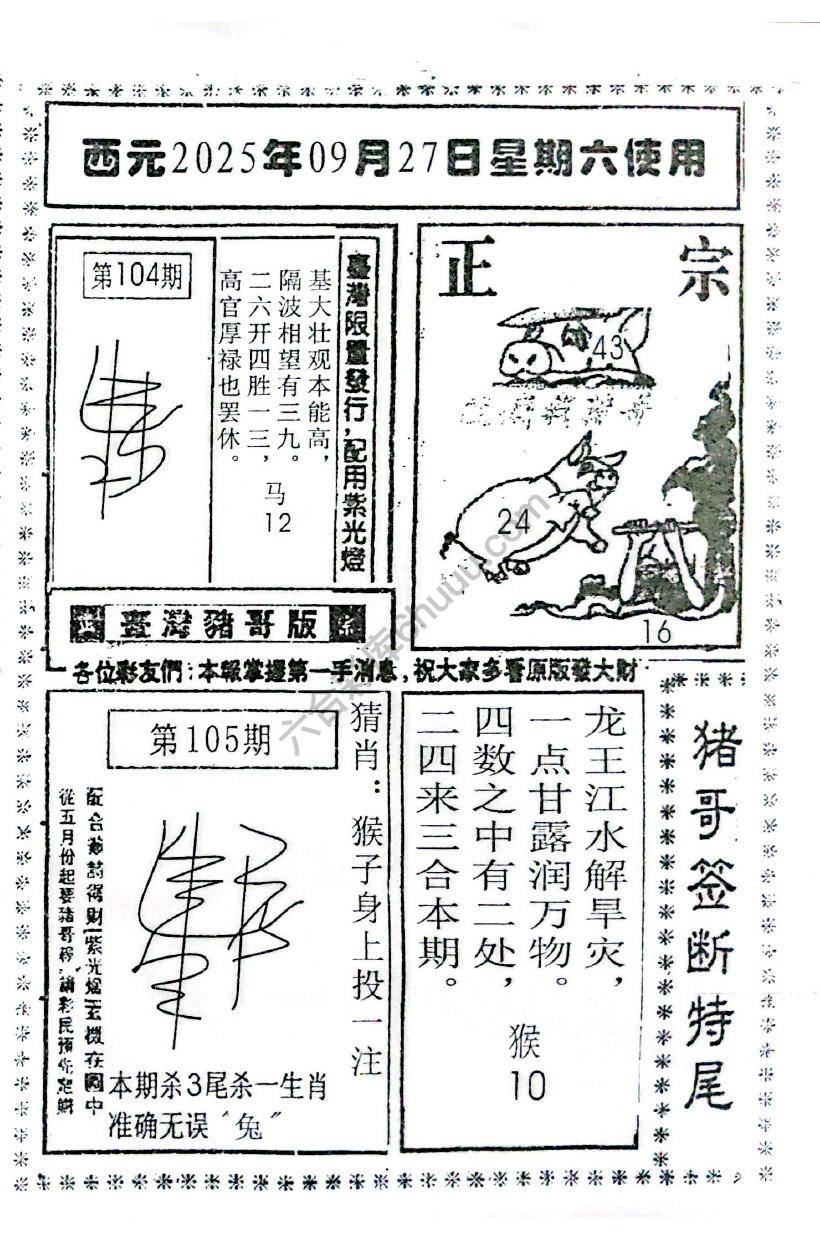 西元2025年09月27日星期六使用
第104期
臺灣限量發行,配用紫光燈
基大壮观本能高,
隔波相望有三九。
二六开四胜一三,
高官厚禄也罢休。
马
12
正宗
43
24
16
臺灣豬哥版
各位彩友們:本報掌握第一手消息,祝大家多看原版發大財
第105期
猜肖:猴子身上投一注
從五月份起要豬哥
紫光燈
玄機在圖中
本期杀3尾杀一生肖
准确无误“兔”
龙王江水解旱灾,
一点甘露润万物。
四数之中有二处,
二四来三合本期。
猴
10
猪哥签断特尾
六合彩库6huuu.com